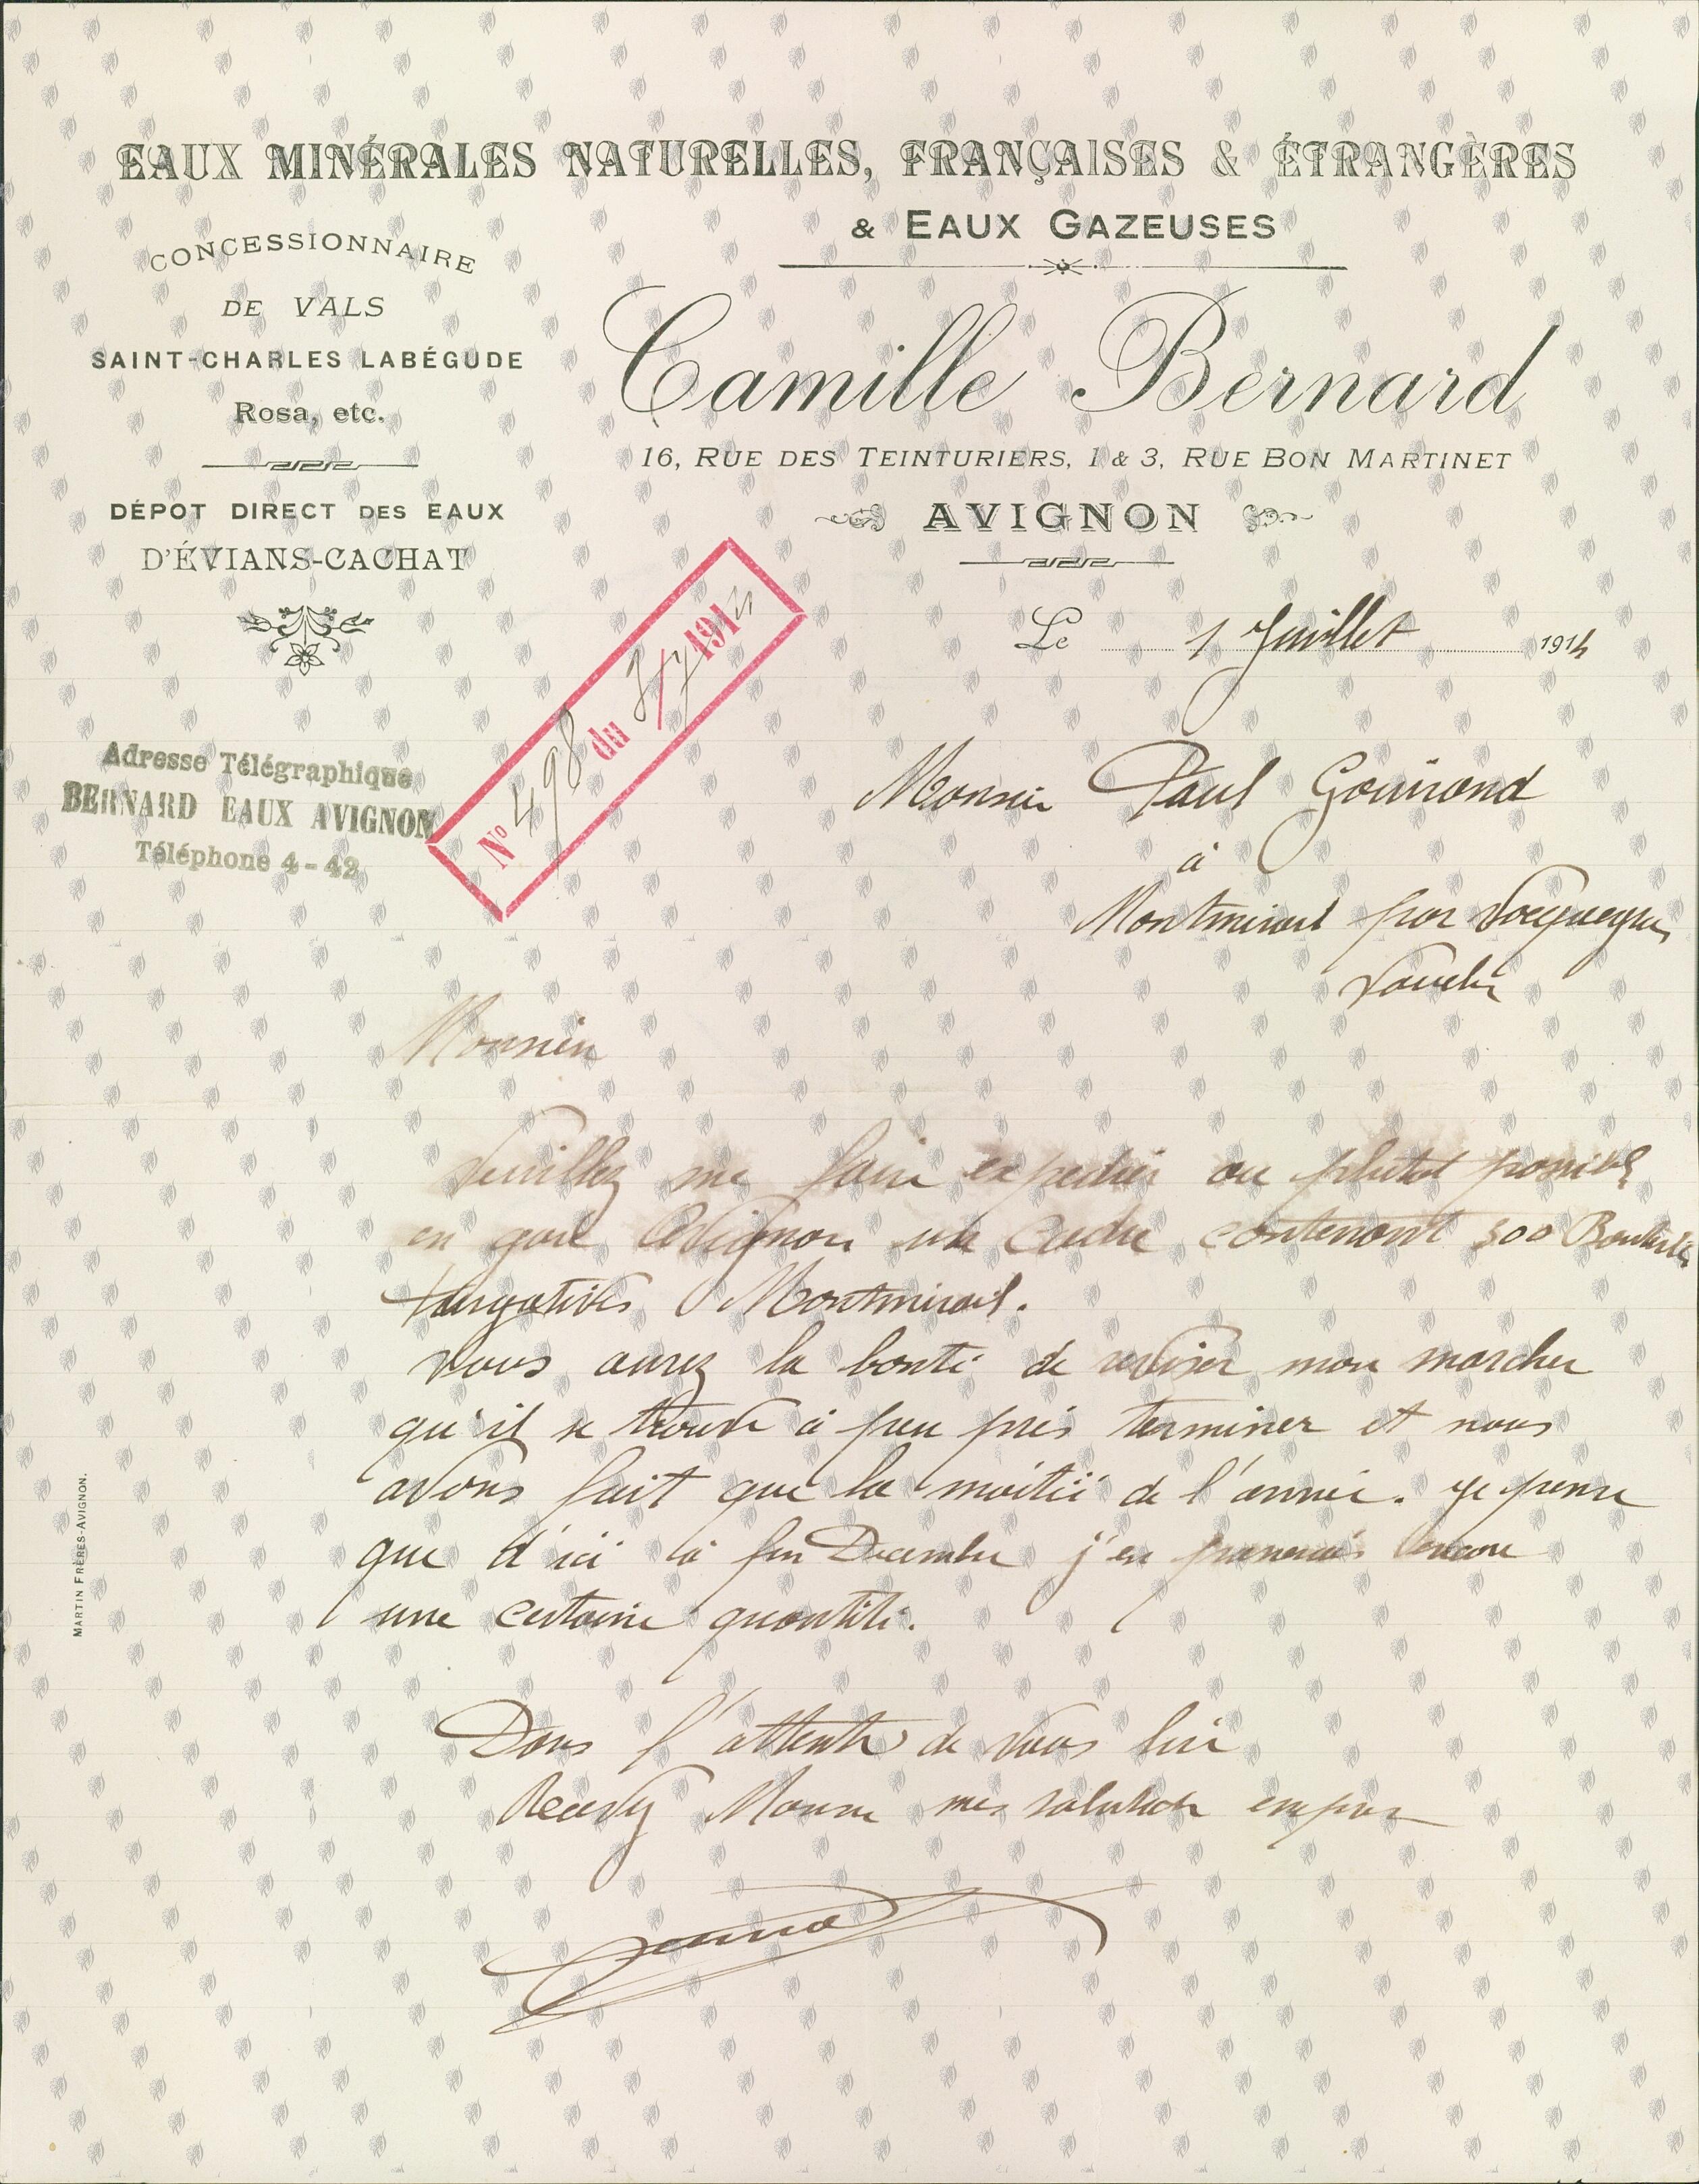 EAUX MINÉRALES NATURELLES, FRANÇAISES & ÉTRANGÈRES
& EAUX GAZEUSES
CONCESSIONNAIRE
DE VALS
SAINT-CHARLES LABÉGUDE
Rosa, etc.
DÉPOT DIRECT DES EAUX
D'ÉVIANS-CACHAT
Camille Bernard
16, RUE DES TEINTURIERS, 1 & 3, RUE BON MARTINET
AVIGNON
Le 1 Juillet 1914
Adresse Télégraphique
BERNARD EAUX AVIGNON
Téléphone 4-42
N° 498 du 3/7 1914
Monsieur Paul Gouirand
à
Montmirail par Vacqueyras
Vaucluse
Monsieur
Veuillez me faire expedier au plutot possible
en gare Avignon un Cadre contenant 300 Bouteilles
purgatives Montmirail.
Vous aurez la bonté de reviser mon marcher
qu'il se trouve à peu près terminer et nous
avons fait que la moitié de l'année. Je pense
que d'ici à fin Decembre j'en prenerais encore
une certaine quantité.
Dans l'attente de vous lire
Recevez Monsieur mes salutation empres
MARTIN FRÈRES-AVIGNON.